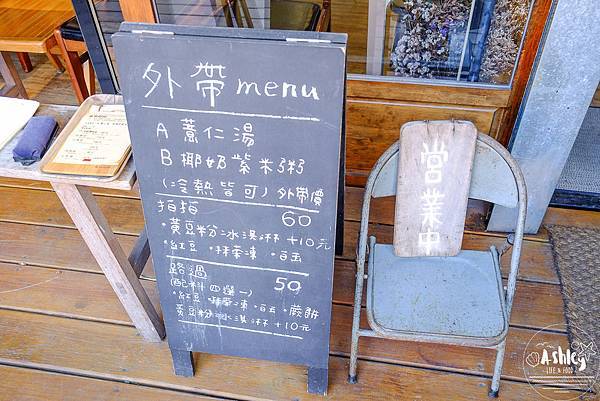 外帶menu
A 薏仁湯
B 椰奶紫米粥
(冷熱皆可) 外帶價
拍拍 60
・黃豆粉冰淇淋 +10元
・紅豆 ・抹茶凍 ・白玉
路過 50
(配料四選一)
・紅豆 ・抹茶凍 ・白玉 ・蕨餅
黃豆粉冰淇淋 +10元
營業中
Ashley
LIFE & FOOD